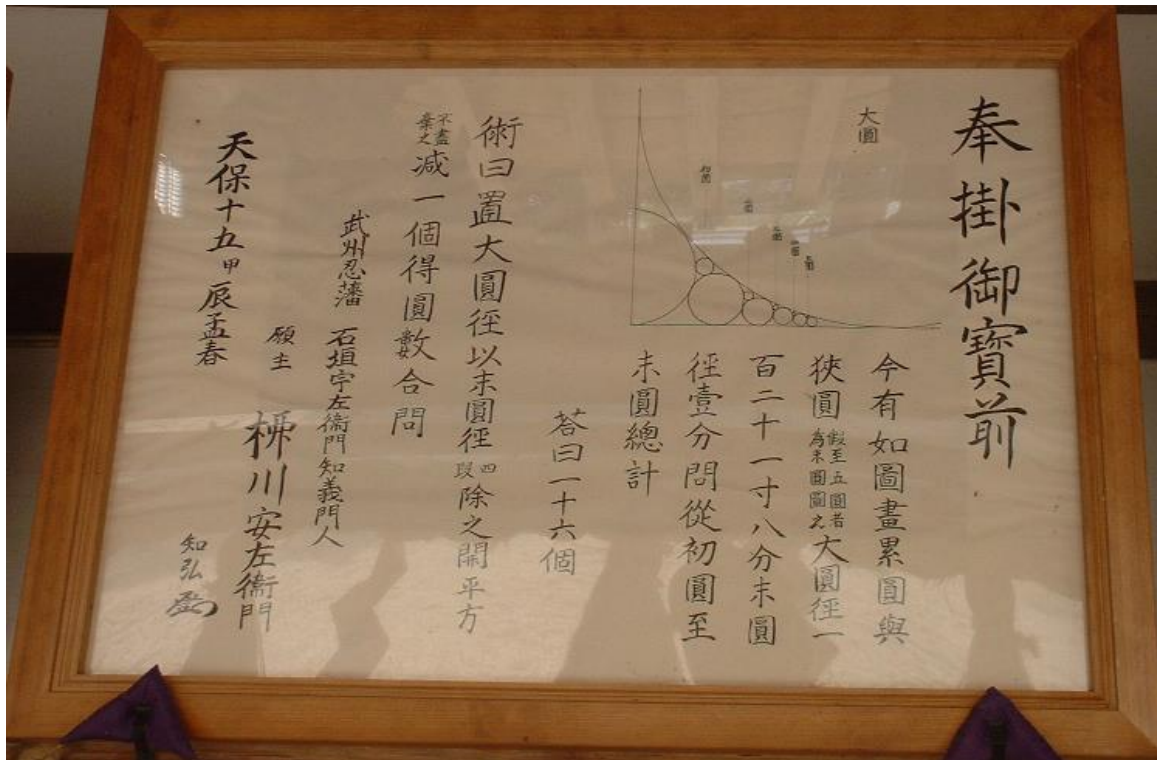 奉掛御寳前
大圓
初圓
今有如圖畫累圓與
狹圓假至五圓者為末圓圖之大圓径一
百二十一寸八分末圓
径壹分問從初圓至
末圓總計
荅曰一十六個
術曰置大圓径以末圓径四段除之開平方
不盡棄之減一個得圓數合問
武州忍藩 石垣宇左衞門知義門人
願主 栁川安左衞門
知弘
天保十五甲辰孟春